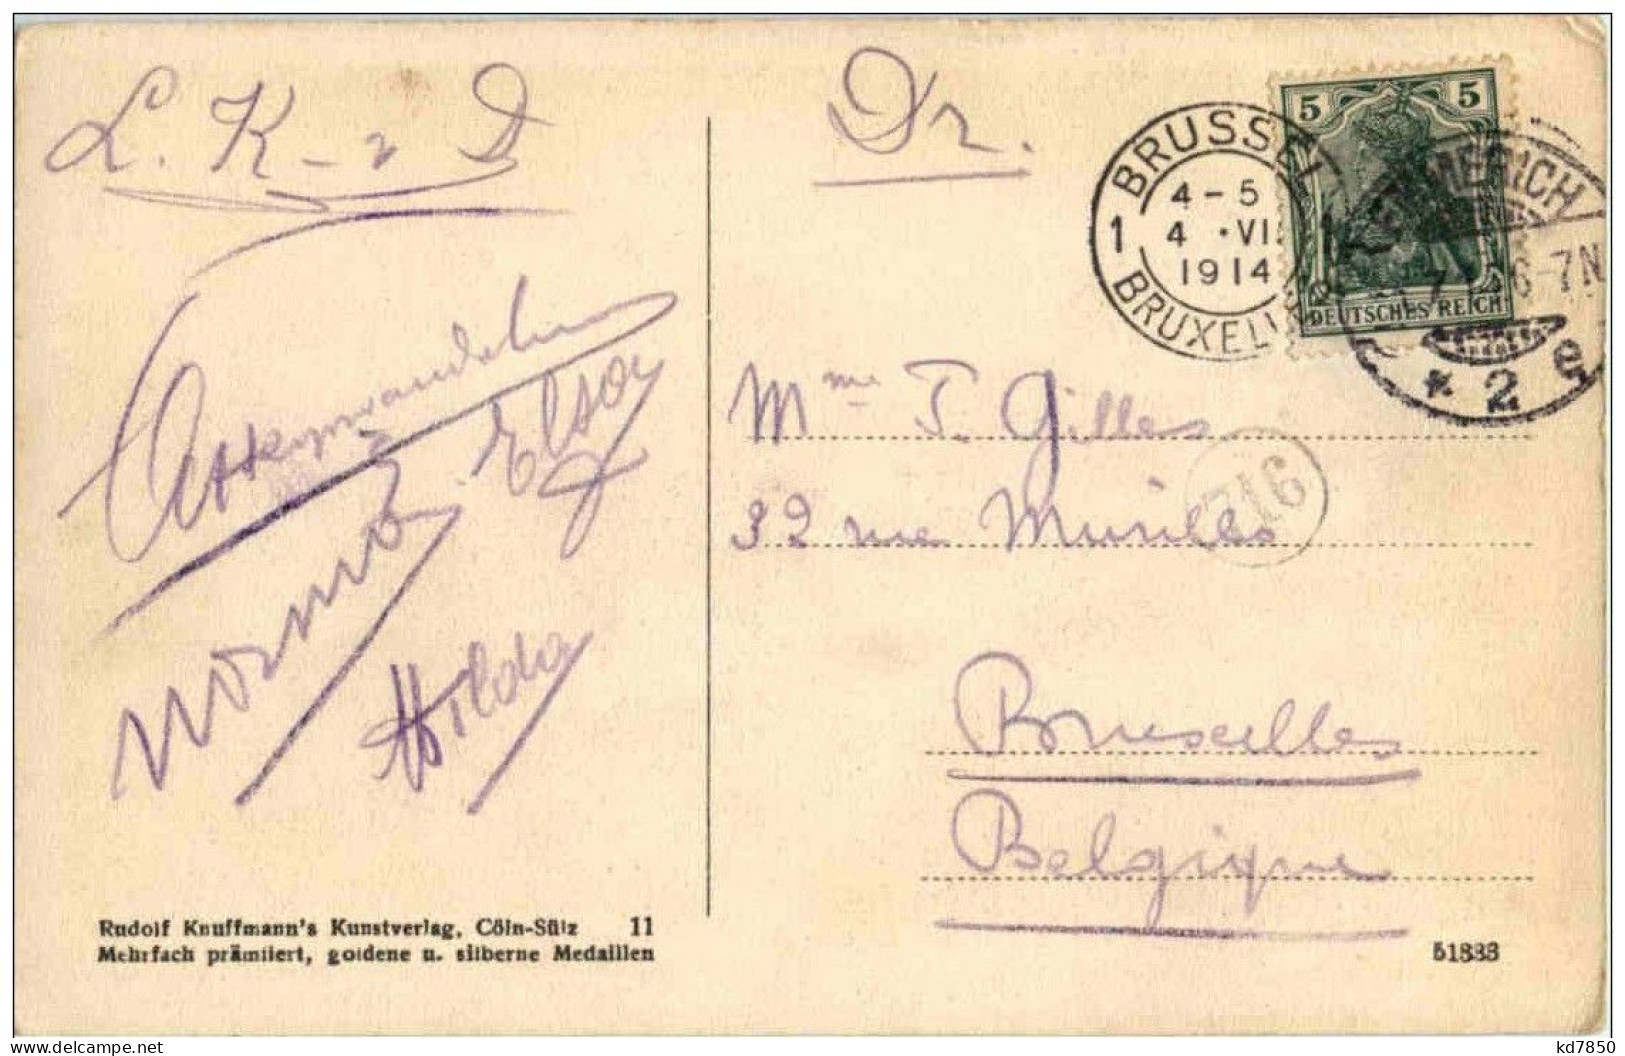 L. K - r D
Dr.
BRUSSEL
1 4 - 5 1
4 · VI
1914
BRUXELLES
5 5
DEUTSCHES REICH
EMMERICH
6-7N
* 2 e
Elsa
Norma
Hilda
Mme T. Gilles
716
32 rue Murillo
Bruxelles
Belgique
Rudolf Knuffmann's Kunstverlag, Cöln-Sülz 11
Mehrfach prämiiert, goldene u. silberne Medaillen
51383
kd7850